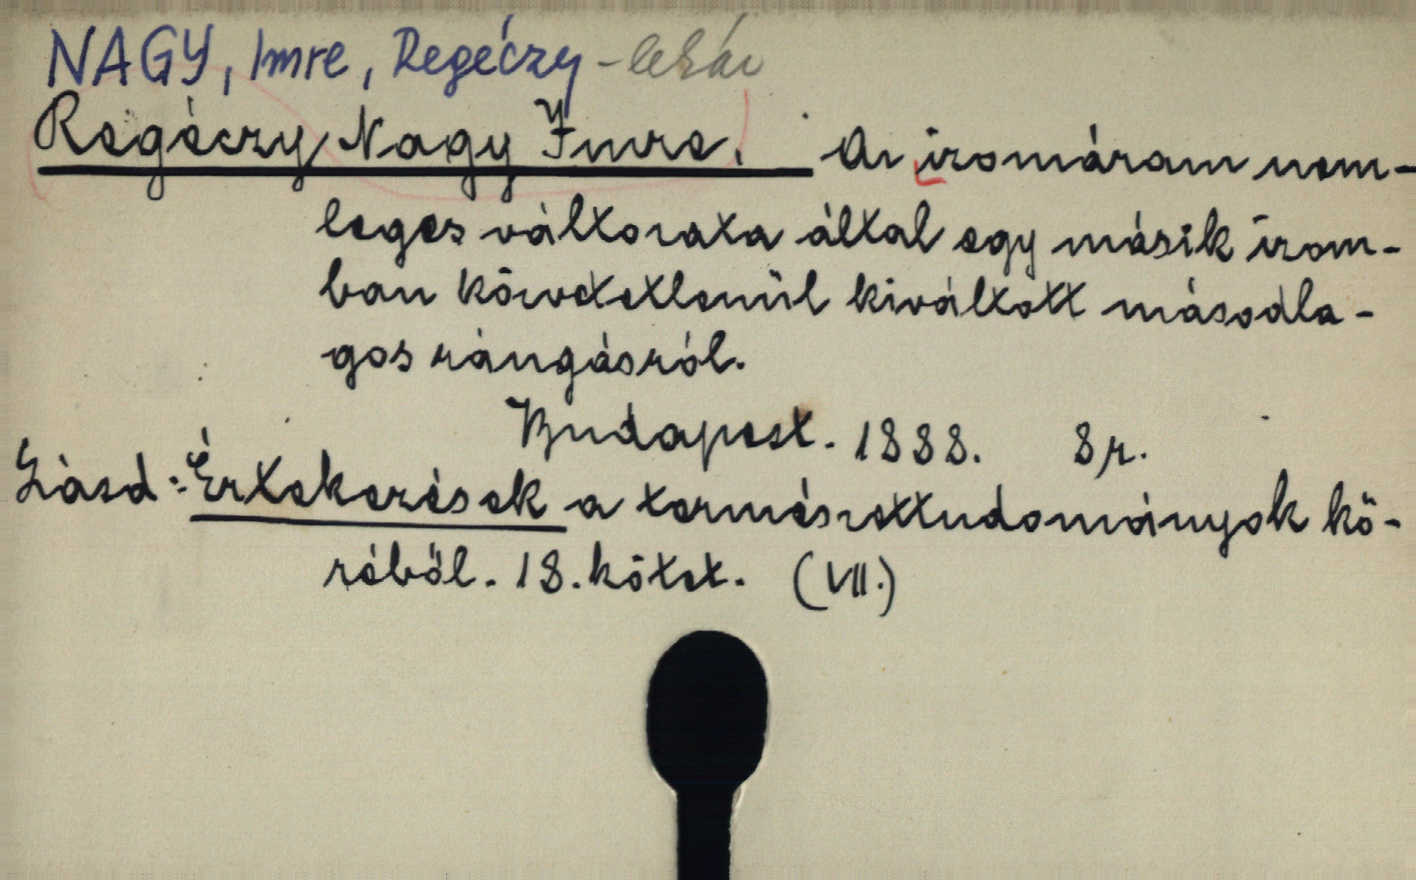 NAGY, Imre, Regéczy - lekár
Regéczy Nagy Imre. Az izomáram nem-
leges változata által egy másik izom-
ban közvetetlenül kiváltott másodla-
gos rángásról.
Budapest. 1888. 8r.
Lásd: Értekezések a természettudományok kö-
réből. 18. kötet. (VII.)